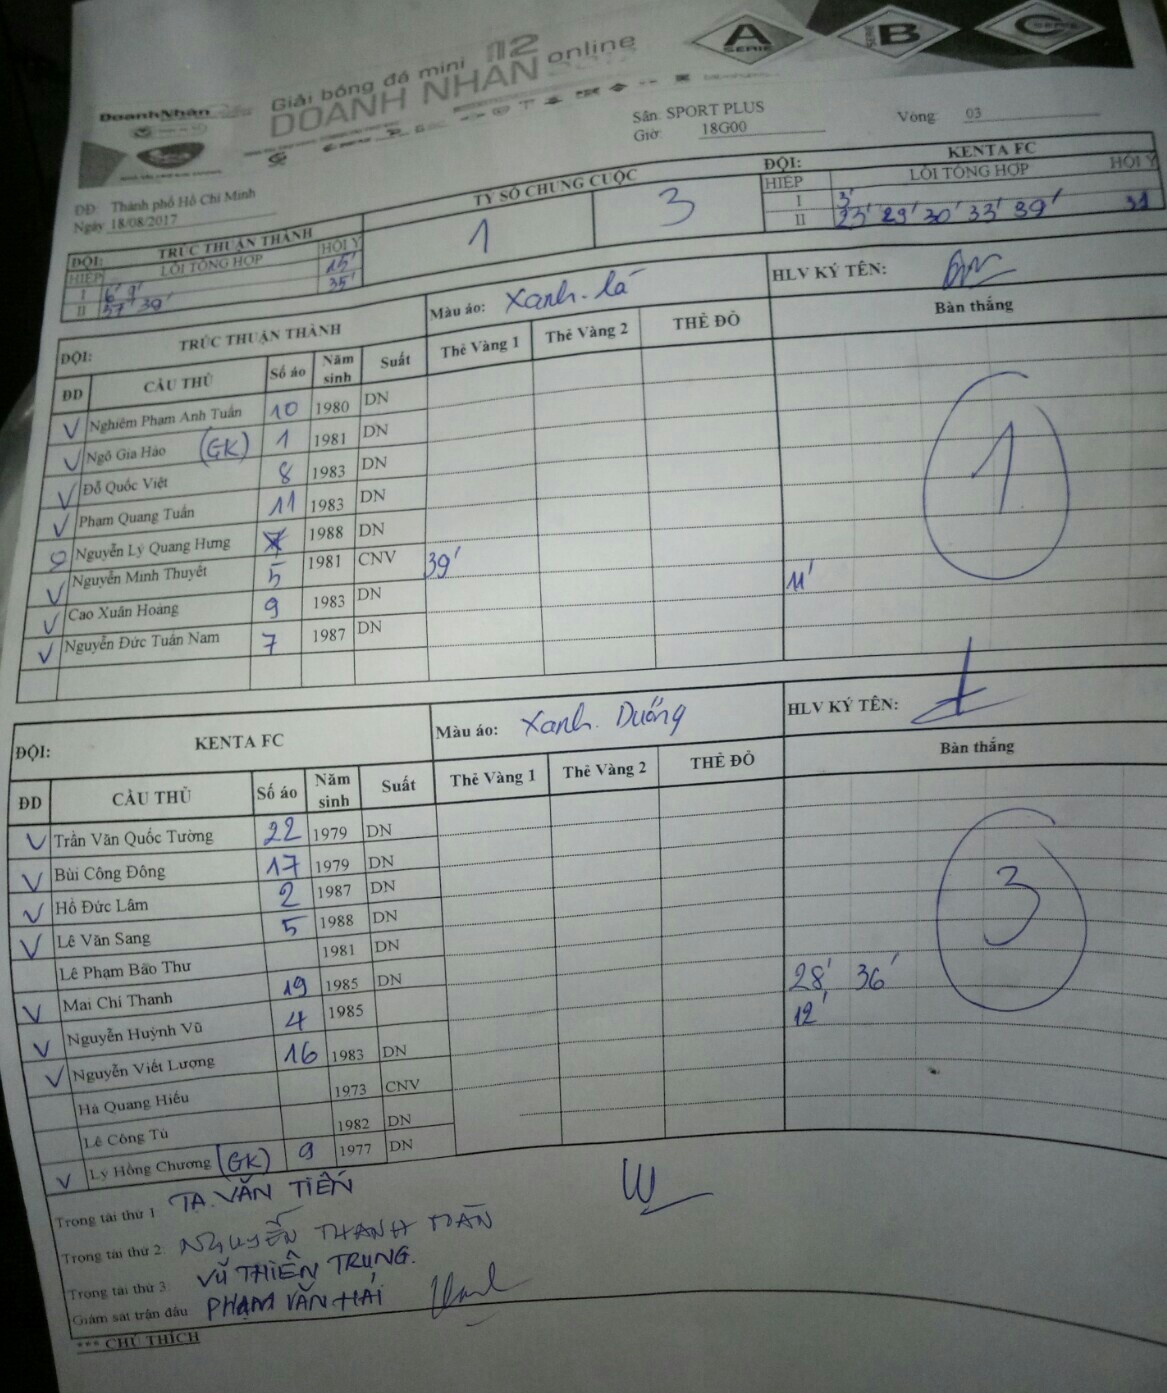 DoanhNhân
Giải bóng đá mini 12
DOANH NHÂN online
A
SERIE
B
SERIE
C
SERIE
ĐĐ: Thành phố Hồ Chí Minh
Ngày 18/08/2017
Sân: SPORT PLUS
Giờ: 18G00
Vòng: 03
ĐỘI: TRÚC THUẬN THÀNH
HIỆP LỖI TỔNG HỢP HỘI Ý
I 6' 9' 15'
II 37' 39' 35'
TỶ SỐ CHUNG CUỘC
1 3
ĐỘI: KENTA FC
HIỆP LỖI TỔNG HỢP HỘI Ý
I 3'
II 23' 29' 30' 33' 39' 31
ĐỘI: TRÚC THUẬN THÀNH Màu áo: Xanh lá HLV KÝ TÊN:
ĐD CẦU THỦ Số áo Năm sinh Suất Thẻ Vàng 1 Thẻ Vàng 2 THẺ ĐỎ Bàn thắng
V Nghiêm Phạm Anh Tuấn 10 1980 DN
V Ngô Gia Hào (GK) 1 1981 DN
V Đỗ Quốc Việt 8 1983 DN
V Phạm Quang Tuấn 11 1983 DN
Nguyễn Lý Quang Hưng 1988 DN
V Nguyễn Minh Thuyết 5 1981 CNV 39'
V Cao Xuân Hoàng 9 1983 DN 11'
V Nguyễn Đức Tuấn Nam 7 1987 DN
1
ĐỘI: KENTA FC Màu áo: Xanh Dương HLV KÝ TÊN:
ĐD CẦU THỦ Số áo Năm sinh Suất Thẻ Vàng 1 Thẻ Vàng 2 THẺ ĐỎ Bàn thắng
V Trần Văn Quốc Tường 22 1979 DN
V Bùi Công Đông 17 1979 DN
V Hồ Đức Lâm 2 1987 DN
V Lê Văn Sang 5 1988 DN
Lê Phạm Bão Thư 1981 DN
V Mai Chí Thanh 19 1985 DN 28' 36'
V Nguyễn Huỳnh Vũ 4 1985 12'
V Nguyễn Viết Lương 16 1983 DN
Hà Quang Hiếu 1973 CNV
Lê Công Tú 1982 DN
V Lý Hồng Chương (GK) 9 1977 DN
3
Trọng tài thứ 1 TẠ VĂN TIẾN
Trọng tài thứ 2: NGUYỄN THANH TOÀN
Trọng tài thứ 3 VŨ THIÊN TRUNG.
Giám sát trận đấu: PHẠM VĂN HẢI
*** CHÚ THÍCH